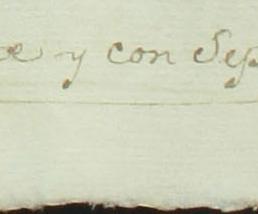 e y con Sep